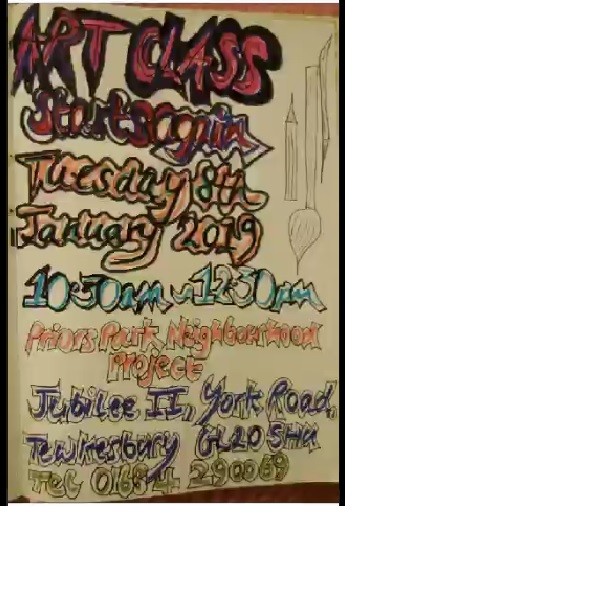 ART CLASS
starts again
Tuesday 8th
January 2019
10:30am - 12:30pm
Priors Park Neighbourhood
Project
Jubilee II, York Road,
Tewkesbury GL20 5HU
Tel 01684 290069